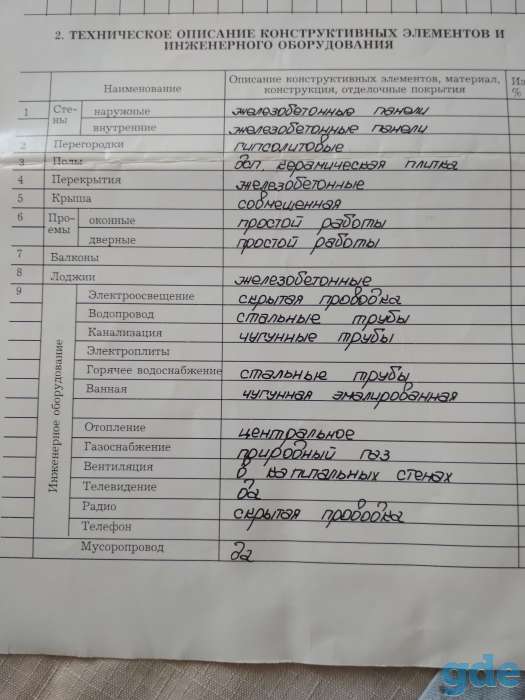 2. ТЕХНИЧЕСКОЕ ОПИСАНИЕ КОНСТРУКТИВНЫХ ЭЛЕМЕНТОВ И
ИНЖЕНЕРНОГО ОБОРУДОВАНИЯ
Наименование
Описание конструктивных элементов, материал,
конструкция, отделочные покрытия
Из
%
1 Сте- наружные железобетонные панели
ны внутренние железобетонные панели
2 Перегородки гипсолитовые
3 Полы дсп, керамическая плитка
4 Перекрытия железобетонные
5 Крыша совмещенная
6 Про- оконные простой работы
емы дверные простой работы
7 Балконы
8 Лоджии железобетонные
9 Инженерное оборудование
Электроосвещение скрытая проводка
Водопровод стальные трубы
Канализация чугунные трубы
Электроплиты
Горячее водоснабжение стальные трубы
Ванная чугунная эмалированная
Отопление центральное
Газоснабжение природный газ
Вентиляция в капитальных стенах
Телевидение да
Радио скрытая проводка
Телефон
Мусоропровод да
gde